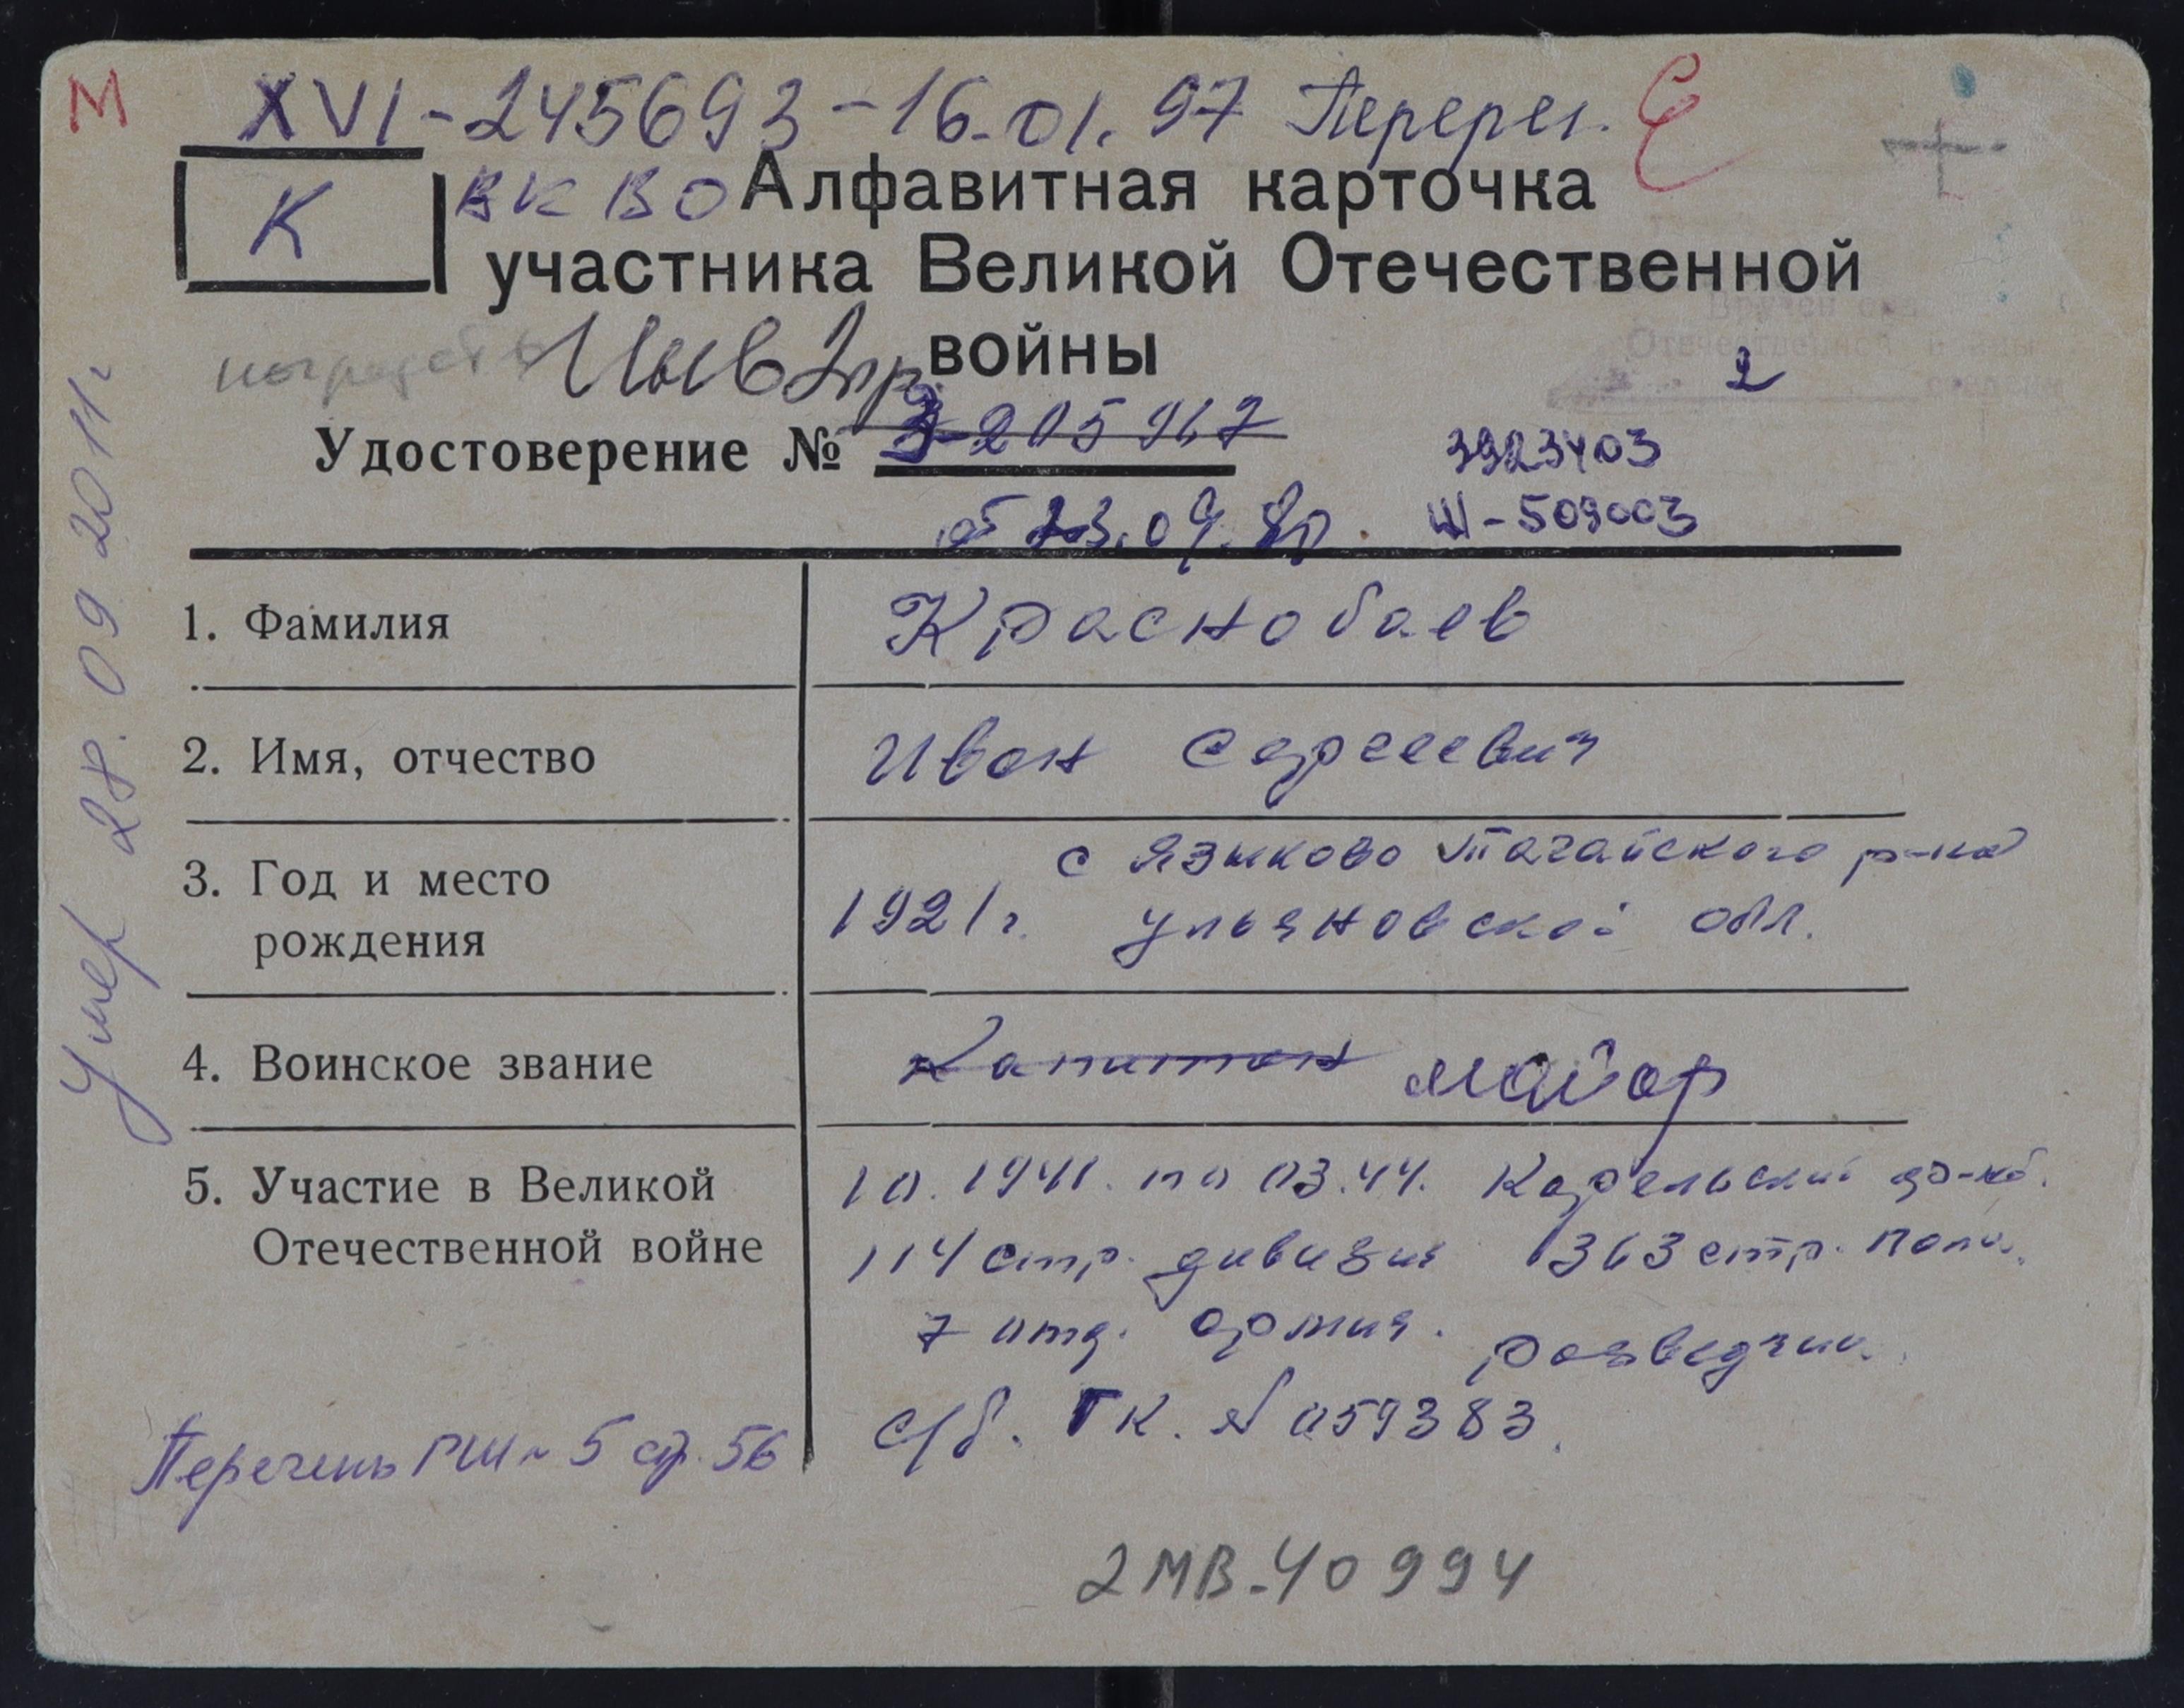 М XVI-245693-16.01.97 Перерег.
К ВК ВО Алфавитная карточка
участника Великой Отечественной
Инв 2гр войны
2
Удостоверение №
3923403
от 23.09.80. Ш-509003
1. Фамилия Краснобаев
2. Имя, отчество Иван Сергеевич
с Языково Тагайского р-на
3. Год и место
рождения 1921г. Ульяновской обл.
4. Воинское звание Капитан майор
5. Участие в Великой 10.1941. по 03.44. Карельский
Отечественной войне 114 стр. дивизия 363 стр. полк.
7 отд. армия. разведчик.
Перечень ГШ 5 стр. 56 с/б. ГК. № 059383.
2МВ-40994
Умер 28.09 2011г